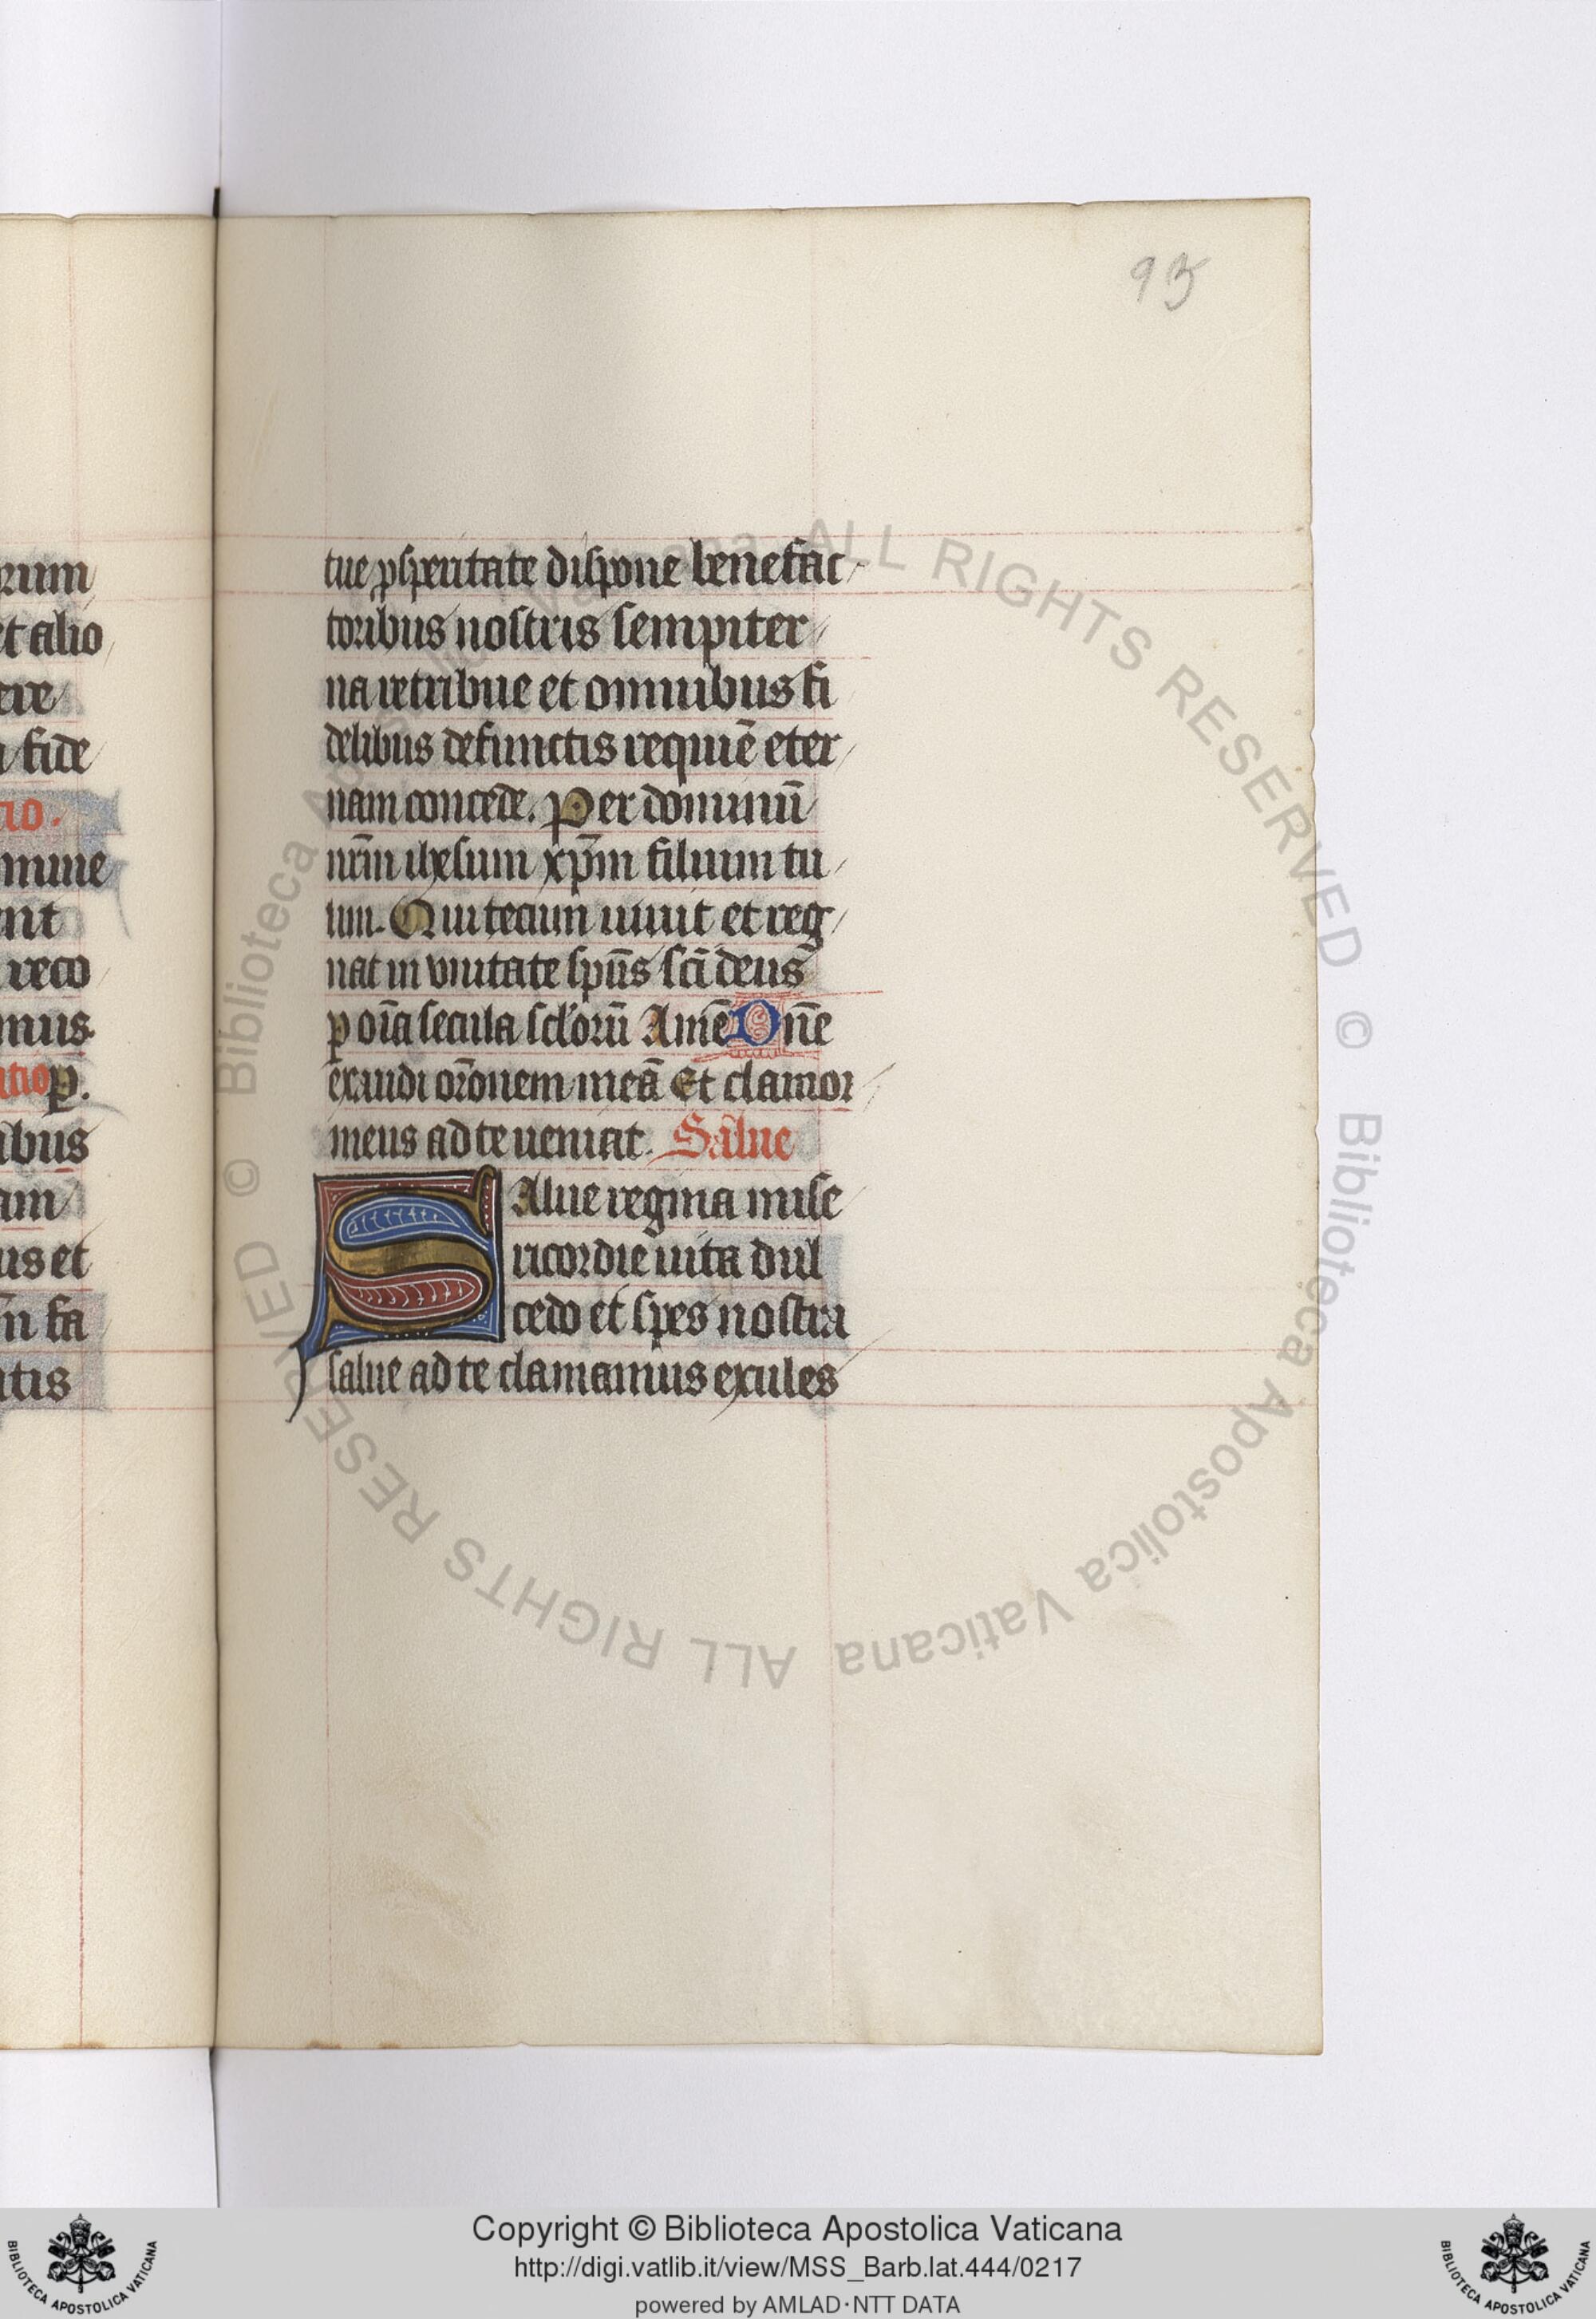 93
rum
et alio
fide
cio.
mine
nt
reco
mus.
tio p.
ibus
am
us et
fa
tis
tue ꝓsperitate dispone benefac
toribus nostris sempiter
na retribue et omnibus fi
delibus defunctis requiē eter
nam concede. Per dominū
nr̄m ihesum xp̄m filium tu
um. Qui tecum uiuit et reg
nat in vnitate spūs sc̄i deus
ꝑ oīa secula sclorū Amē Dn̄e
exaudi or̄onem meā Et clamor
meus ad te ueniat. Salue
Salue regina mise
ricordie uita dul
cedo et spes nostra
salue ad te clamamus exules
© Biblioteca Apostolica Vaticana ALL RIGHTS RESERVED
© Biblioteca Apostolica Vaticana ALL RIGHTS RESERVED
Copyright © Biblioteca Apostolica Vaticana
http://digi.vatlib.it/view/MSS_Barb.lat.444/0217
powered by AMLAD·NTT DATA
BIBLIOTECA APOSTOLICA VATICANA
BIBLIOTECA APOSTOLICA VATICANA